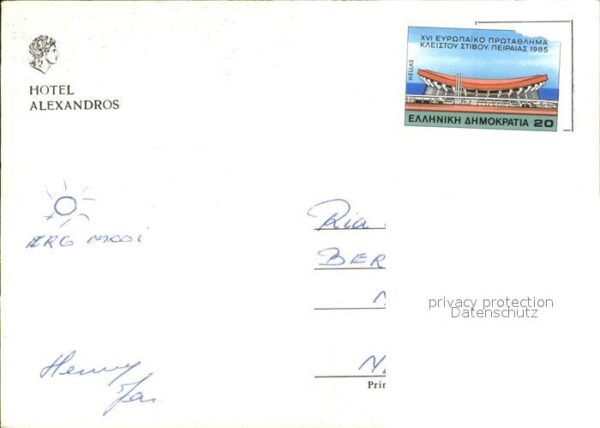 HOTEL
ALEXANDROS
XVI ΕΥΡΩΠΑΪΚΟ ΠΡΩΤΑΘΛΗΜΑ
ΚΛΕΙΣΤΟΥ ΣΤΙΒΟΥ, ΠΕΙΡΑΙΑΣ 1985
HELLAS
ΕΛΛΗΝΙΚΗ ΔΗΜΟΚΡΑΤΙΑ 20
ERG MOOI
Ria
BER
N
privacy protection
Datenschutz
Henny
Jan
Prin